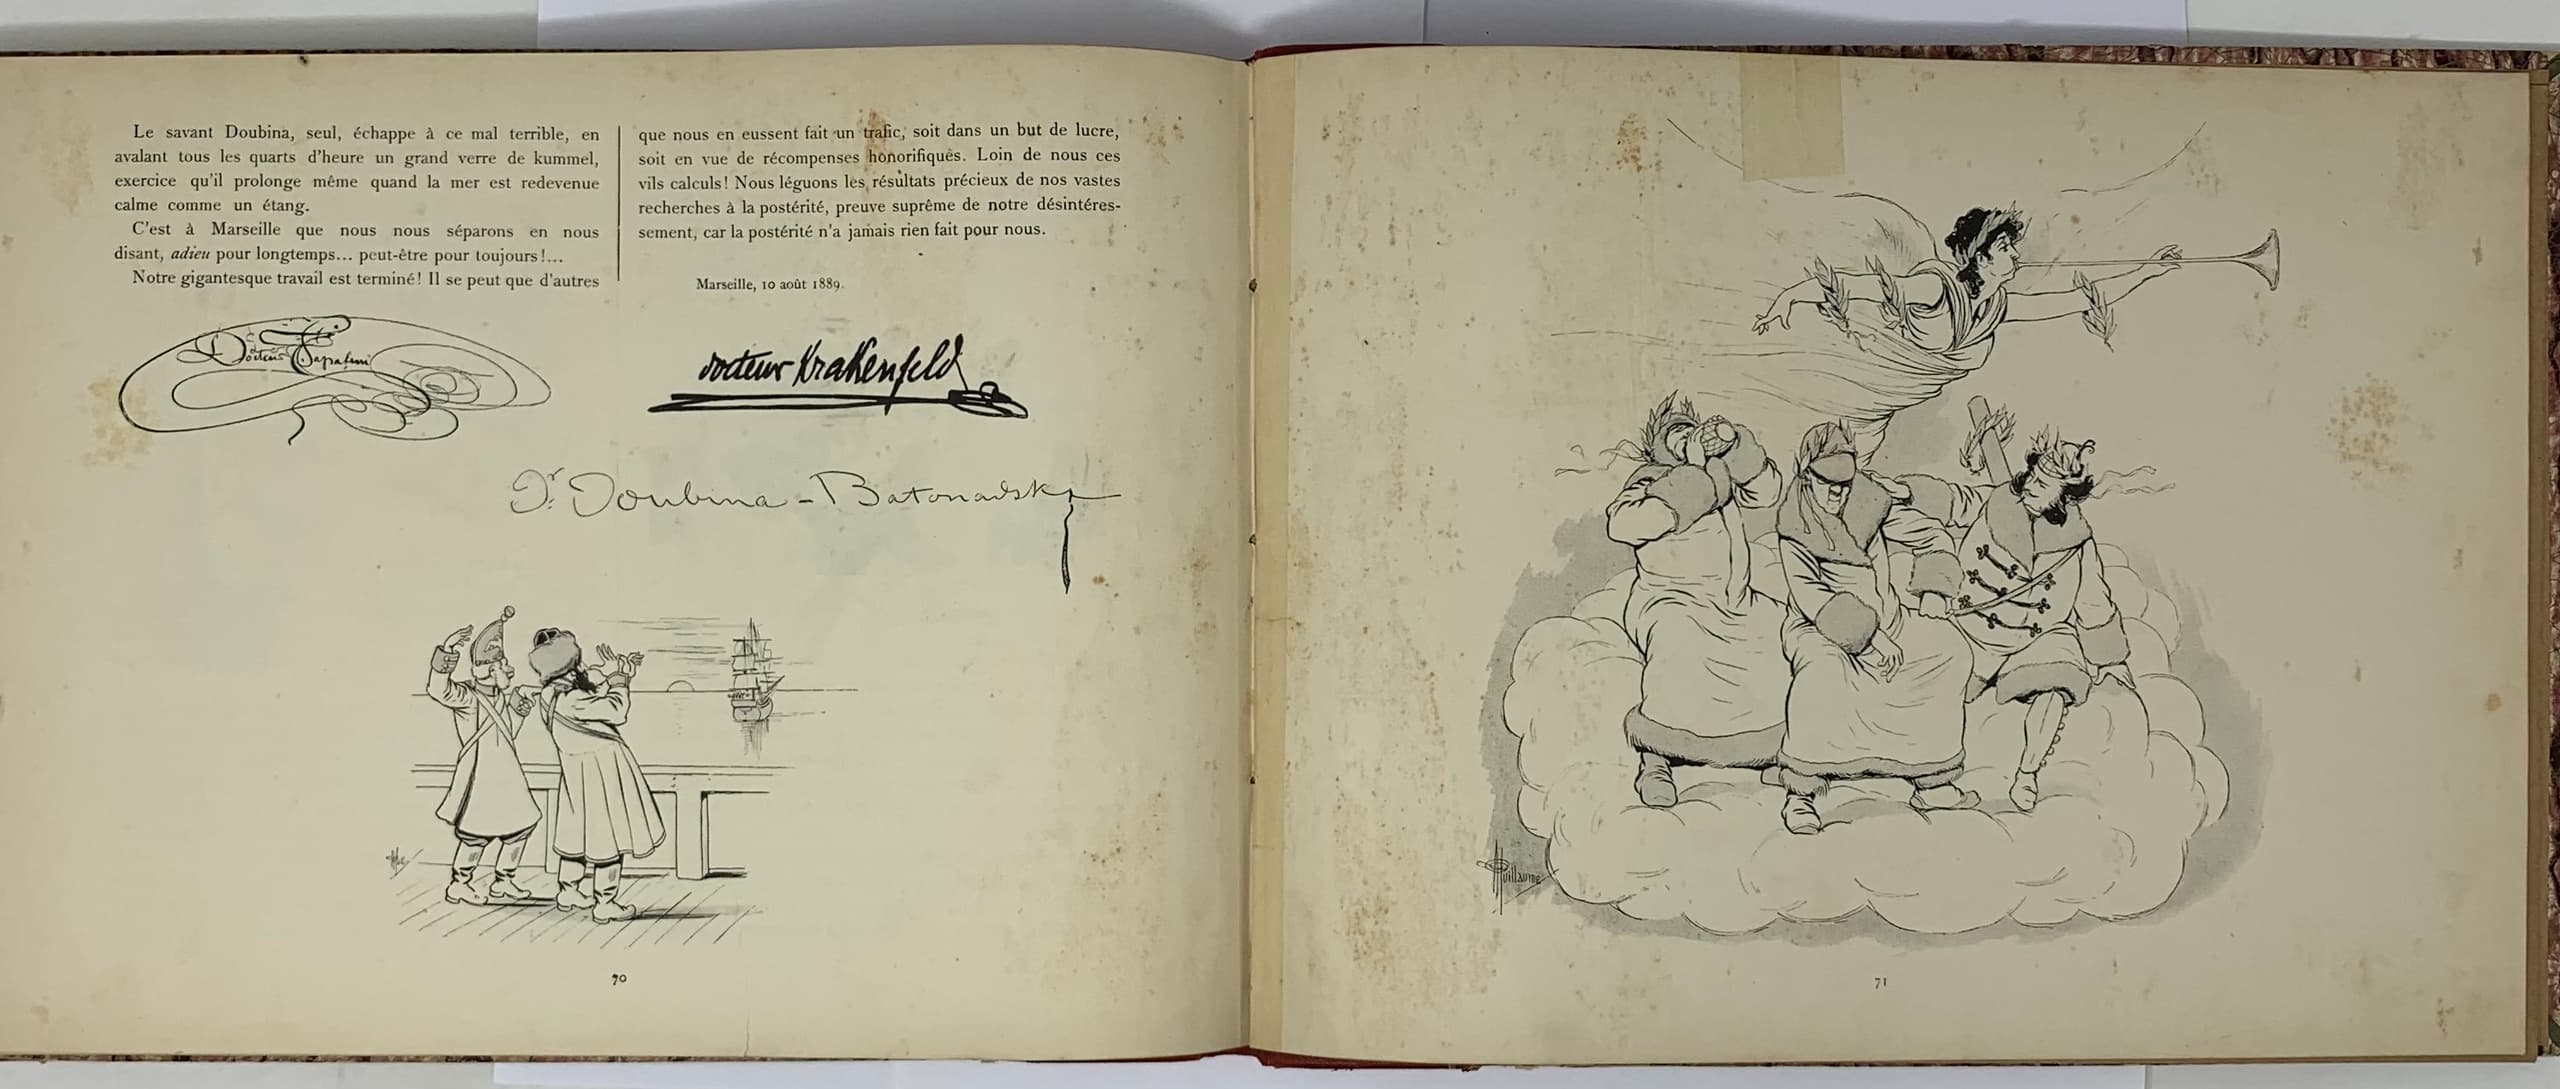 Le savant Doubina, seul, échappe à ce mal terrible, en
avalant tous les quarts d'heure un grand verre de kummel,
exercice qu'il prolonge même quand la mer est redevenue
calme comme un étang.
C'est à Marseille que nous nous séparons en nous
disant, adieu pour longtemps... peut-être pour toujours!...
Notre gigantesque travail est terminé! Il se peut que d'autres
que nous en eussent fait un trafic, soit dans un but de lucre,
soit en vue de récompenses honorifiques. Loin de nous ces
vils calculs! Nous léguons les résultats précieux de nos vastes
recherches à la postérité, preuve suprême de notre désintéres-
sement, car la postérité n'a jamais rien fait pour nous.
Marseille, 10 août 1889.
Docteur
docteur Krakenfeld
Dr Doubina-Batonadsky
70
Guillaume
71